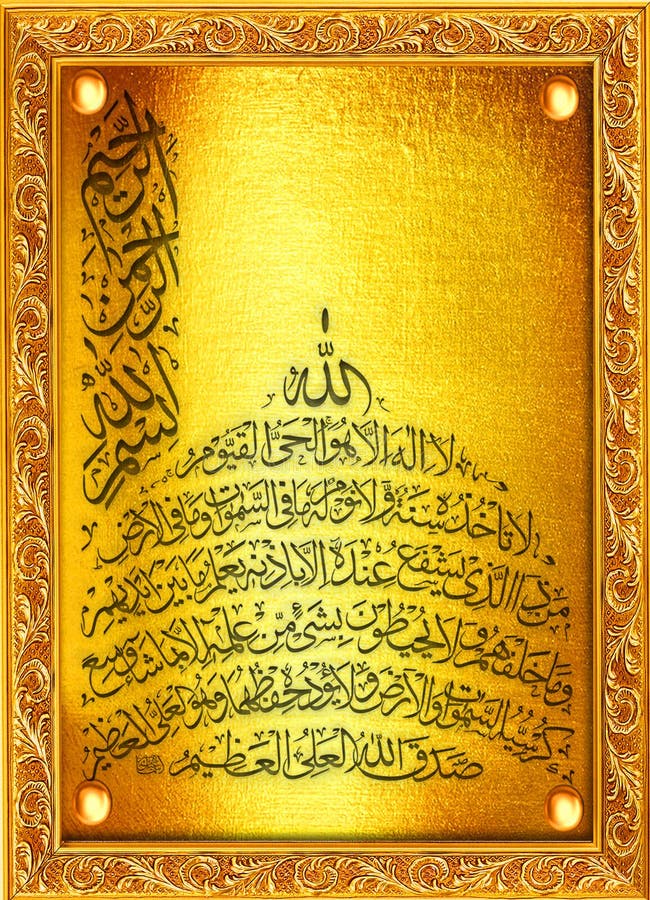 بسم الله الرحمن الرحيم
الله
لا اله الا هو الحي القيوم
لا تأخذه سنة ولا نوم له ما في السموات وما في الارض
من ذا الذي يشفع عنده الا باذنه يعلم ما بين ايديهم
وما خلفهم ولا يحيطون بشيء من علمه الا بما شاء وسع
كرسيه السموات والارض ولا يؤده حفظهما وهو العلي العظيم
صدق الله العلي العظيم